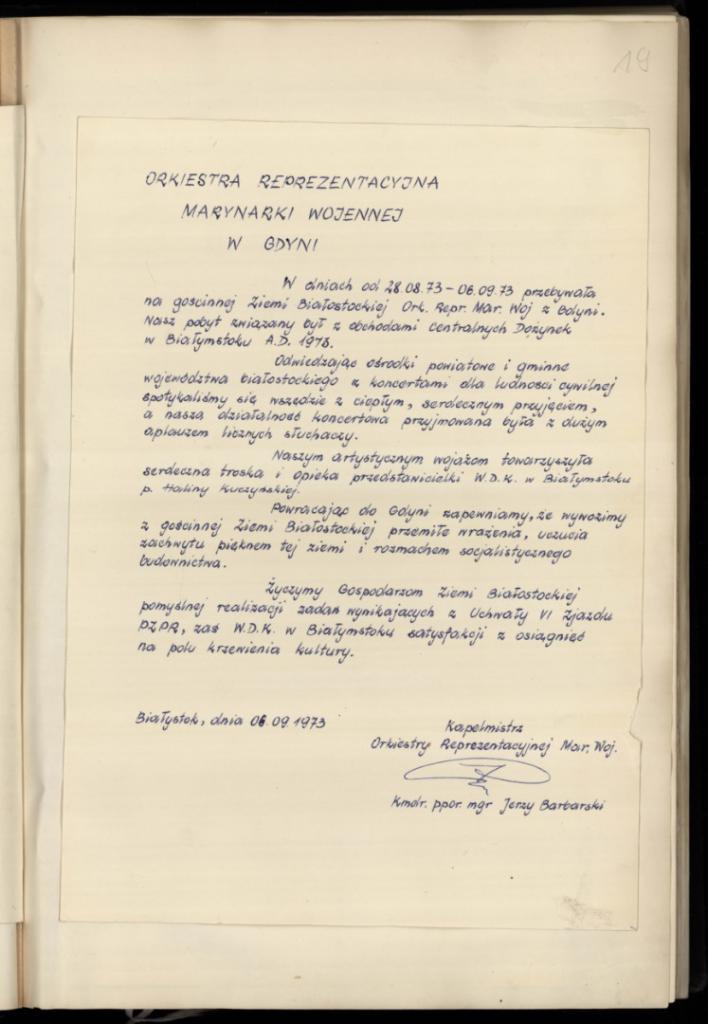 19
ORKIESTRA REPREZENTACYJNA
MARYNARKI WOJENNEJ
W GDYNI
W dniach od 28.08.73 – 06.09.73 przebywała
na gościnnej Ziemi Białostockiej Ork. Repr. Mar. Woj z Gdyni.
Nasz pobyt związany był z obchodami Centralnych Dożynek
w Białymstoku A.D. 1973.
Odwiedzając ośrodki powiatowe i gminne
województwa białostockiego z koncertami dla ludności cywilnej
spotykaliśmy się wszędzie z ciepłym, serdecznym przyjęciem,
a nasza działalność koncertowa przyjmowana była z dużym
aplauzem licznych słuchaczy.
Naszym artystycznym wojażom towarzyszyła
serdeczna troska i opieka przedstawicielki W.D.K. w Białymstoku
p. Haliny Kuczyńskiej.
Powracając do Gdyni zapewniamy, że wywozimy
z gościnnej Ziemi Białostockiej przemiłe wrażenia, uczucia
zachwytu pięknem tej ziemi i rozmachem socjalistycznego
budownictwa.
Życzymy Gospodarzom Ziemi Białostockiej
pomyślnej realizacji zadań wynikających z Uchwały VI Zjazdu
PZPR, zaś W.D.K. w Białymstoku satysfakcji z osiągnięć
na polu krzewienia kultury.
Białystok, dnia 06.09.1973
Kapelmistrz
Orkiestry Reprezentacyjnej Mar. Woj.
Kmdr. ppor. mgr Jerzy Barbarski